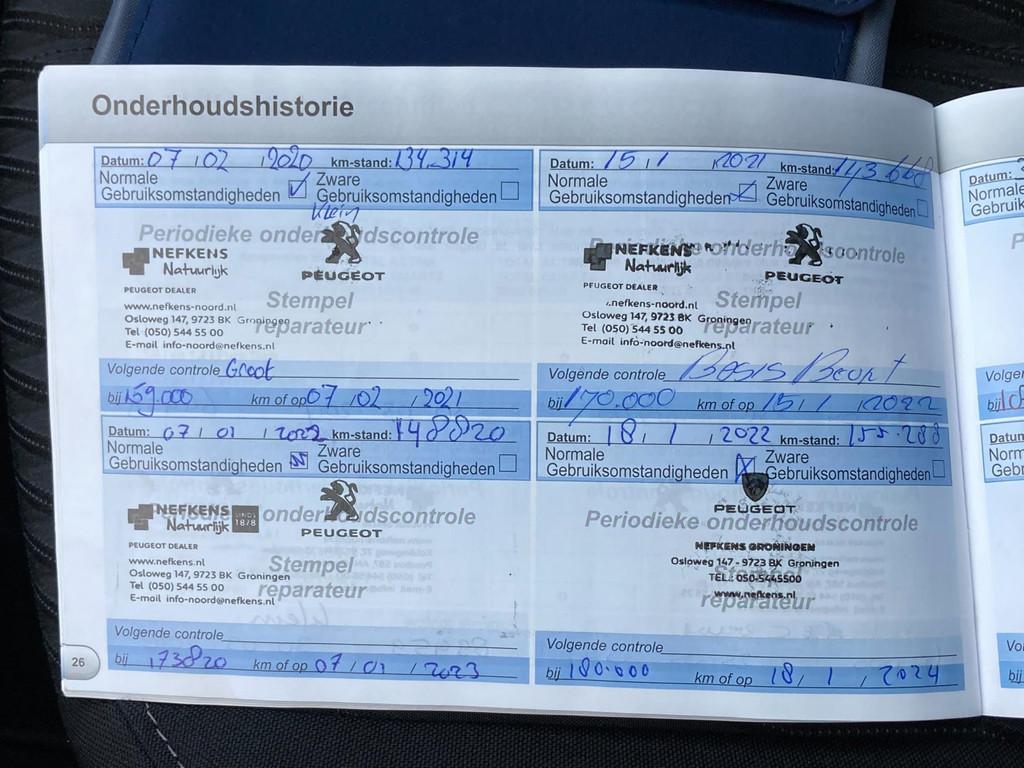 Onderhoudshistorie
Datum: 07 / 02 / 2020 km-stand: 134.314
Normale Gebruiksomstandigheden Zware Gebruiksomstandigheden
Klein
Periodieke onderhoudscontrole
NEFKENS
Natuurlijk
PEUGEOT
PEUGEOT DEALER
www.nefkens-noord.nl
Osloweg 147, 9723 BK Groningen
Tel (050) 544 55 00
E-mail info-noord@nefkens.nl
Stempel
reparateur
Volgende controle Groot
bij 159.000 km of op 07 / 02 / 2021
Datum: 15 / 1 / 2021 km-stand: 143.668
Normale Gebruiksomstandigheden Zware Gebruiksomstandigheden
Periodieke onderhoudscontrole
NEFKENS
Natuurlijk
PEUGEOT
PEUGEOT DEALER
.nefkens-noord.nl
Osloweg 147, 9723 BK Groningen
Tel (050) 544 55 00
E-mail info-noord@nefkens.nl
Stempel
reparateur
Volgende controle Basis Beurt
bij 170.000 km of op 15 / 1 / 2022
Datum: 07 / 01 / 2022 km-stand: 148820
Normale Gebruiksomstandigheden Zware Gebruiksomstandigheden
Periodieke onderhoudscontrole
NEFKENS
Natuurlijk
SINDS 1878
PEUGEOT
PEUGEOT DEALER
www.nefkens.nl
Osloweg 147, 9723 BK Groningen
Tel (050) 544 55 00
E-mail info-noord@nefkens.nl
Stempel
reparateur
Volgende controle
bij 173820 km of op 07 / 01 / 2023
Datum: 18 / 1 / 2022 km-stand: 155.288
Normale Gebruiksomstandigheden Zware Gebruiksomstandigheden
PEUGEOT
Periodieke onderhoudscontrole
NEFKENS GRONINGEN
Osloweg 147 - 9723 BK Groningen
TEL.: 050-5445500
www.nefkens.nl
Stempel
reparateur
Volgende controle
bij 180.000 km of op 18 / 1 / 2024
26